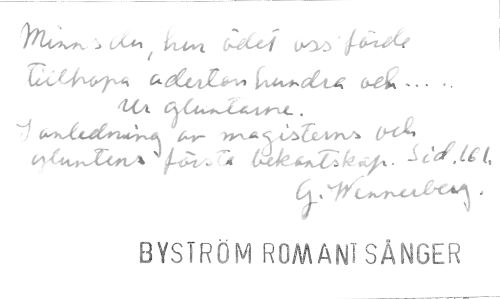 Minns du, hur ödet oss förde
tillhopa adertonhundra och.....
Ur gluntarne.
I anledning av magisterns och
gluntens första bekantskap. Sid. 161.
G. Wennerberg.
BYSTRÖM ROMANT SÅNGER